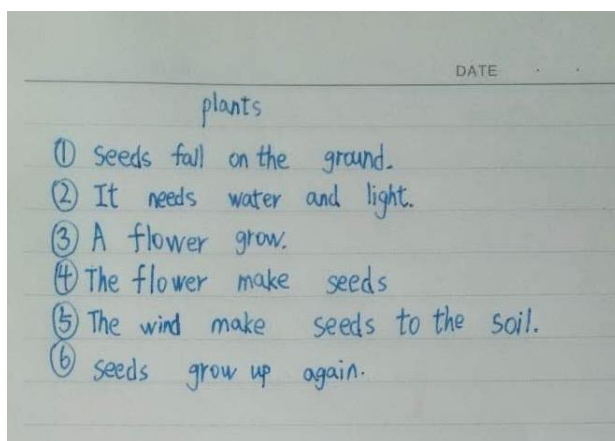 DATE . .
plants
① Seeds fall on the ground.
② It needs water and light.
③ A flower grow.
④ The flower make seeds
⑤ The wind make seeds to the soil.
⑥ seeds grow up again.